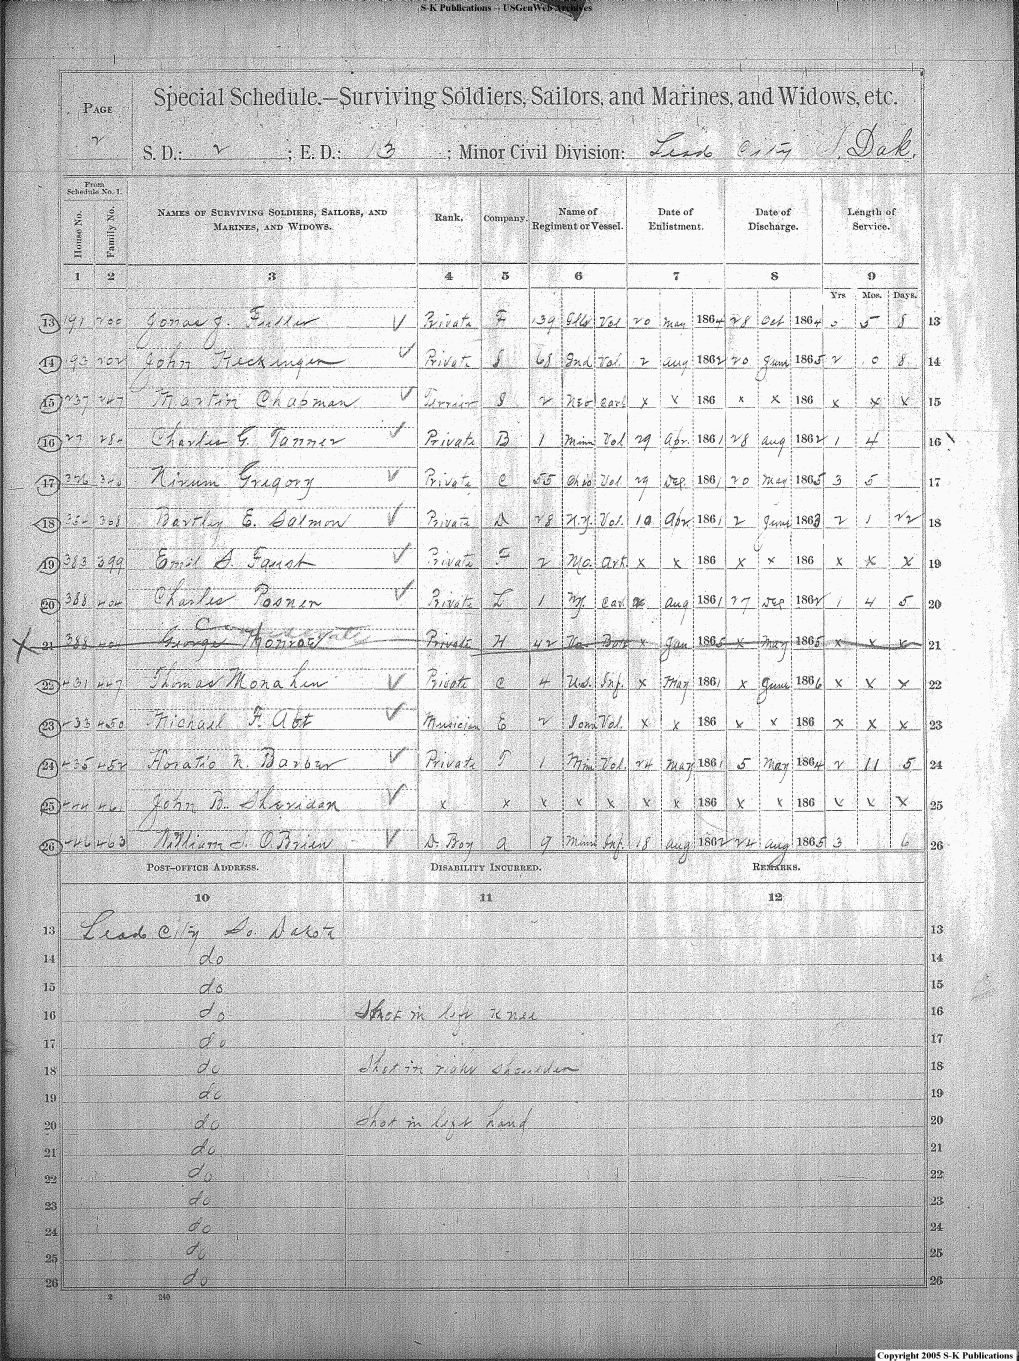 S-K Publications -- USGenWeb Archives
Page 2
Special Schedule.—Surviving Soldiers, Sailors, and Marines, and Widows, etc.
S. D.: 2 ; E. D.: 13 ; Minor Civil Division: Lead City S. Dak.
From Schedule No. 1.
House No. Family No. Names of Surviving Soldiers, Sailors, and Marines, and Widows. Rank. Company. Name of Regiment or Vessel. Date of Enlistment. Date of Discharge. Length of Service.
1 2 3 4 5 6 7 8 9
Yrs Mos. Days.
13 191 200 Jonas J. Fuller Private F 139 Ills Vol 20 May 1864 28 Oct 1864 5 8 13
14 193 202 John Keckinger Private 68 Ind Vol. 2 Aug 1862 20 June 1865 2 0 8 14
15 237 247 Martin Chapman 2 Cavl x x 186 x x 186 x x x 15
16 27 284 Charles G. Tanner Private B 1 Minn Vol 29 Apr. 1861 28 Aug 1862 1 4 16
17 326 340 Gregory Private C 55 Ohio Vol 29 Dec 1861 20 May 1865 3 5 17
18 354 368 Bartley E. Salmon Private D 28 N.Y. Vol. 10 Apr 1861 2 June 1863 2 1 22 18
19 383 399 Emil A. Faust Private F 2 Mo. Art. x x 186 x x 186 x x x 19
20 388 404 Charles Posner Private L 1 Cav. x Aug 1861 27 Dec 1862 1 4 5 20
Confederate
21 388 404 George Monroe Private H 42 x Jan 1865 x May 1865 x x x 21
22 431 447 Thomas Monahen Private C 4 U.S. Inf. x May 1861 x June 1866 x x x 22
23 433 450 Michael F. Abt Musician E 2 Iowa Vol. x x 186 x x 186 x x x 23
24 435 452 Horatio N. Barber Private 1 Min Vol. 24 May 1861 5 May 1864 2 11 5 24
25 444 461 John B. Sheridan x x x x x x x 186 x x 186 x x x 25
26 446 463 William J. O'Brien Dr. Boy A 9 Minn Inf. 18 Aug 1862 24 Aug 1865 3 6 26
Post-office Address. Disability Incurred. Remarks.
10 11 12
13 Lead City So. Dakota 13
14 do 14
15 do 15
16 do Shot in left knee 16
17 do 17
18 do Shot in right shoulder 18
19 do 19
20 do Shot in left hand 20
21 do 21
22 do 22
23 do 23
24 do 24
25 do 25
26 do 26
2 240
Copyright 2005 S-K Publications